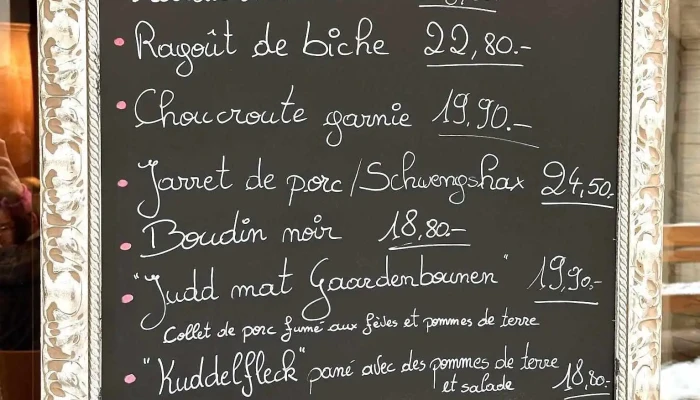 Ragoût de biche 22,80.-
Choucroute garnie 19,90.-
Jarret de porc/Schwengshax 24,50.
Boudin noir 18,80.-
"Judd mat Gaardenbounen" 19,90.-
Collet de porc fumé aux fèves et pommes de terre
"Kuddelfleck" pané avec des pommes de terre
et salade 18,80.-